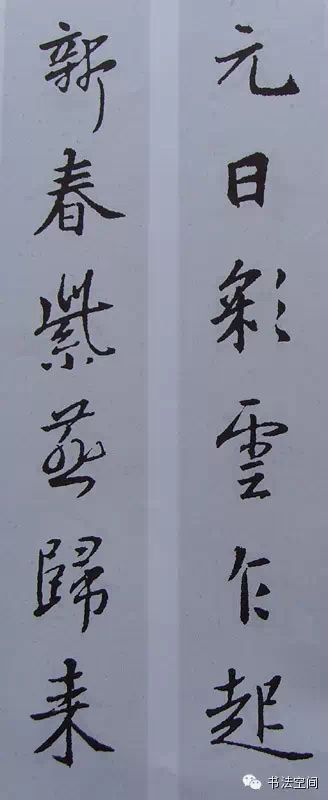 元日彩雲乍起
新春紫燕歸来
书法空间